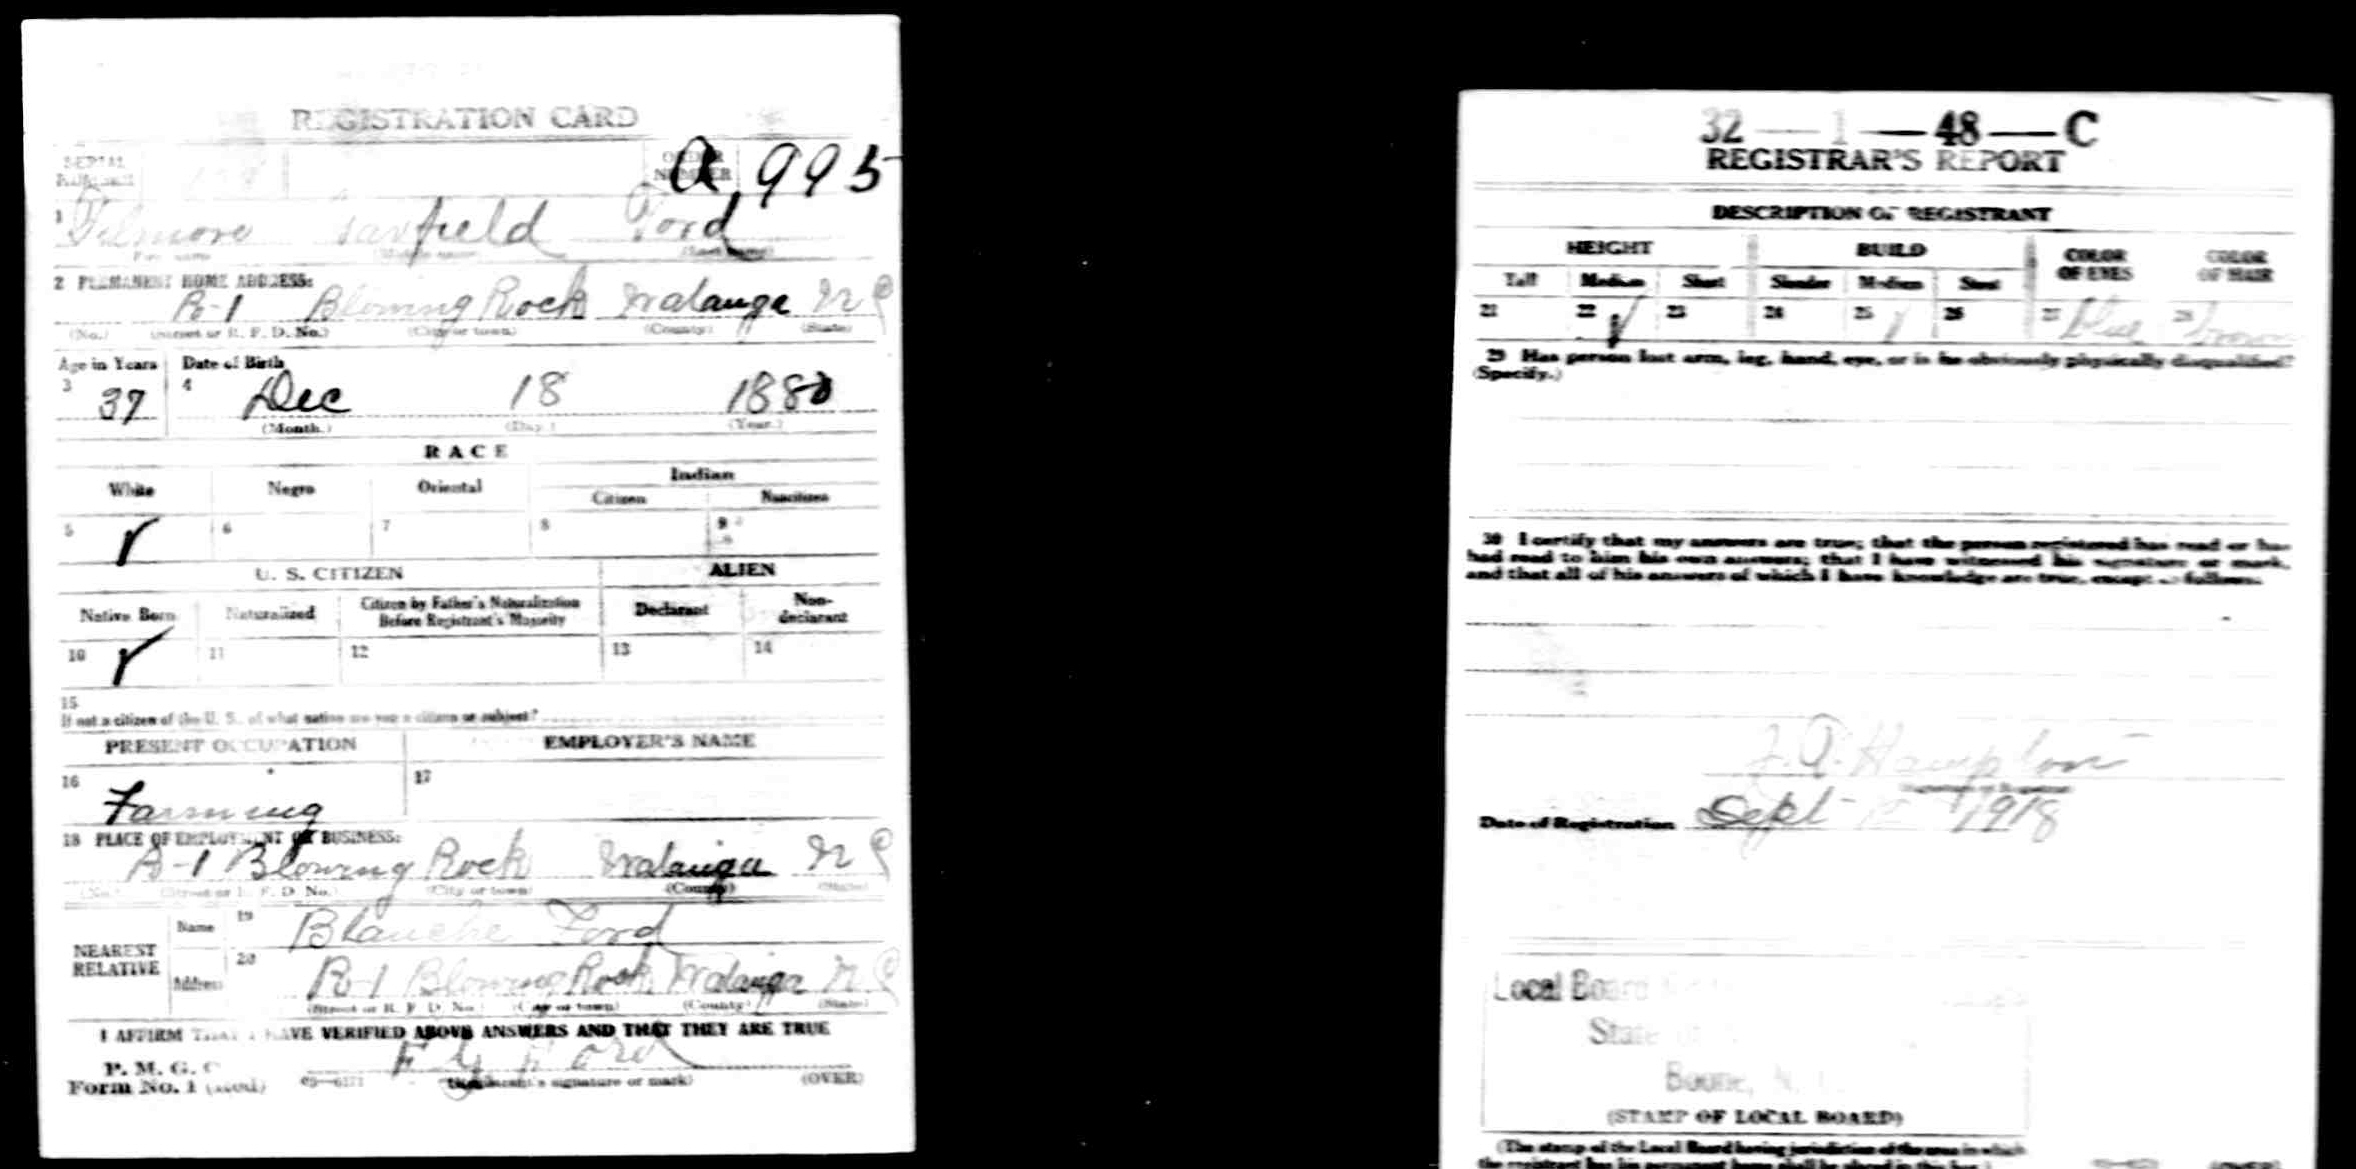 REGISTRATION CARD
SERIAL NUMBER
ORDER NUMBER A 995
1 Filmore Garfield Ford
First name (Middle name) (Last name)
2 PERMANENT HOME ADDRESS:
R-1 Blowing Rock Watauga N C
(No.) (Street or R. F. D. No.) (City or town) (County) (State)
Age in Years Date of Birth
3 37 4 Dec 18 1880
(Month.) (Day.) (Year.)
RACE
White Negro Oriental Indian
Citizen Noncitizen
5 6 7 8 9
U. S. CITIZEN ALIEN
Native Born Naturalized Citizen by Father's Naturalization Before Registrant's Majority Declarant Non-declarant
10 11 12 13 14
15
If not a citizen of the U. S., of what nation are you a citizen or subject?
PRESENT OCCUPATION EMPLOYER'S NAME
16 17
Farming
18 PLACE OF EMPLOYMENT OR BUSINESS:
R-1 Blowing Rock Watauga N C
(No.) (Street or R. F. D. No.) (City or town) (County) (State)
NEAREST RELATIVE
Name 19 Blanche Ford
Address 20 R-1 Blowing Rock Watauga N C
(Street or R. F. D. No.) (City or town) (County) (State)
I AFFIRM THAT I HAVE VERIFIED ABOVE ANSWERS AND THAT THEY ARE TRUE
P. M. G. O.
Form No. 1 (Red) F G Ford
(Registrant's signature or mark) (OVER)
32—1—48—C
REGISTRAR'S REPORT
DESCRIPTION OF REGISTRANT
HEIGHT BUILD COLOR OF EYES COLOR OF HAIR
Tall Medium Short Slender Medium Stout
21 22 23 24 25 26 27 blue 28 brown
29 Has person lost arm, leg, hand, eye, or is he obviously physically disqualified?
(Specify.)
30 I certify that my answers are true; that the person registered has read or has
had read to him his own answers; that I have witnessed his signature or mark,
and that all of his answers of which I have knowledge are true, except as follows:
Hampton
Date of Registration Sept 12 1918
Local Board
State of
Boone, N. C.
(STAMP OF LOCAL BOARD)
(The stamp of the Local Board having jurisdiction of the area in which
the registrant has his permanent home shall be placed in this box.)